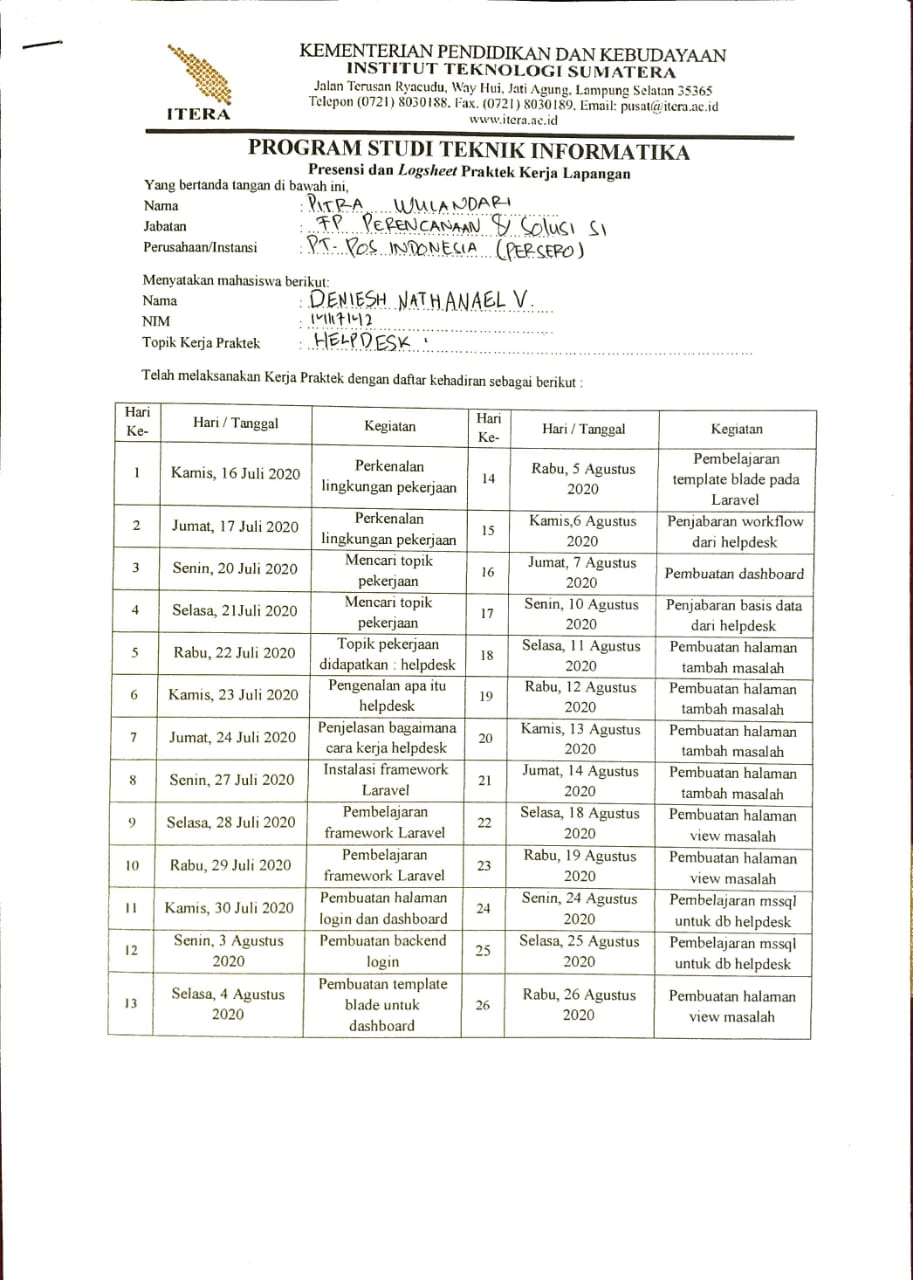 ITERA
KEMENTERIAN PENDIDIKAN DAN KEBUDAYAAN
INSTITUT TEKNOLOGI SUMATERA
Jalan Terusan Ryacudu, Way Hui, Jati Agung, Lampung Selatan 35365
Telepon (0721) 8030188, Fax. (0721) 8030189, Email: pusat@itera.ac.id
www.itera.ac.id
PROGRAM STUDI TEKNIK INFORMATIKA
Presensi dan Logsheet Praktek Kerja Lapangan
Yang bertanda tangan di bawah ini,
Nama : PITRA WULANDARI
Jabatan : FP PERENCANAAN & SOLUSI SI
Perusahaan/Instansi : PT. POS INDONESIA (PERSERO)
Menyatakan mahasiswa berikut:
Nama : DENIESH NATHANAEL V.
NIM : 14117142
Topik Kerja Praktek : HELPDESK
Telah melaksanakan Kerja Praktek dengan daftar kehadiran sebagai berikut :
Hari Ke- Hari / Tanggal Kegiatan Hari Ke- Hari / Tanggal Kegiatan
1 Kamis, 16 Juli 2020 Perkenalan lingkungan pekerjaan 14 Rabu, 5 Agustus 2020 Pembelajaran template blade pada Laravel
2 Jumat, 17 Juli 2020 Perkenalan lingkungan pekerjaan 15 Kamis,6 Agustus 2020 Penjabaran workflow dari helpdesk
3 Senin, 20 Juli 2020 Mencari topik pekerjaan 16 Jumat, 7 Agustus 2020 Pembuatan dashboard
4 Selasa, 21Juli 2020 Mencari topik pekerjaan 17 Senin, 10 Agustus 2020 Penjabaran basis data dari helpdesk
5 Rabu, 22 Juli 2020 Topik pekerjaan didapatkan : helpdesk 18 Selasa, 11 Agustus 2020 Pembuatan halaman tambah masalah
6 Kamis, 23 Juli 2020 Pengenalan apa itu helpdesk 19 Rabu, 12 Agustus 2020 Pembuatan halaman tambah masalah
7 Jumat, 24 Juli 2020 Penjelasan bagaimana cara kerja helpdesk 20 Kamis, 13 Agustus 2020 Pembuatan halaman tambah masalah
8 Senin, 27 Juli 2020 Instalasi framework Laravel 21 Jumat, 14 Agustus 2020 Pembuatan halaman tambah masalah
9 Selasa, 28 Juli 2020 Pembelajaran framework Laravel 22 Selasa, 18 Agustus 2020 Pembuatan halaman view masalah
10 Rabu, 29 Juli 2020 Pembelajaran framework Laravel 23 Rabu, 19 Agustus 2020 Pembuatan halaman view masalah
11 Kamis, 30 Juli 2020 Pembuatan halaman login dan dashboard 24 Senin, 24 Agustus 2020 Pembelajaran mssql untuk db helpdesk
12 Senin, 3 Agustus 2020 Pembuatan backend login 25 Selasa, 25 Agustus 2020 Pembelajaran mssql untuk db helpdesk
13 Selasa, 4 Agustus 2020 Pembuatan template blade untuk dashboard 26 Rabu, 26 Agustus 2020 Pembuatan halaman view masalah